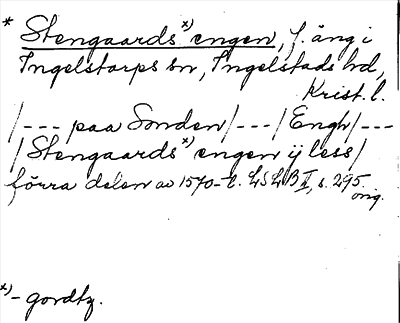 * Stengaards x) engen, f. äng i
Ingelstorps sn, Ingelstads hd,
Krist. l.
/--- paa Sonden/---/Engh/---
/Stengaards x) engen ij less/
förra delen av 1570-t. LSLB II, s. 295.
orig.
x) - gordtz.